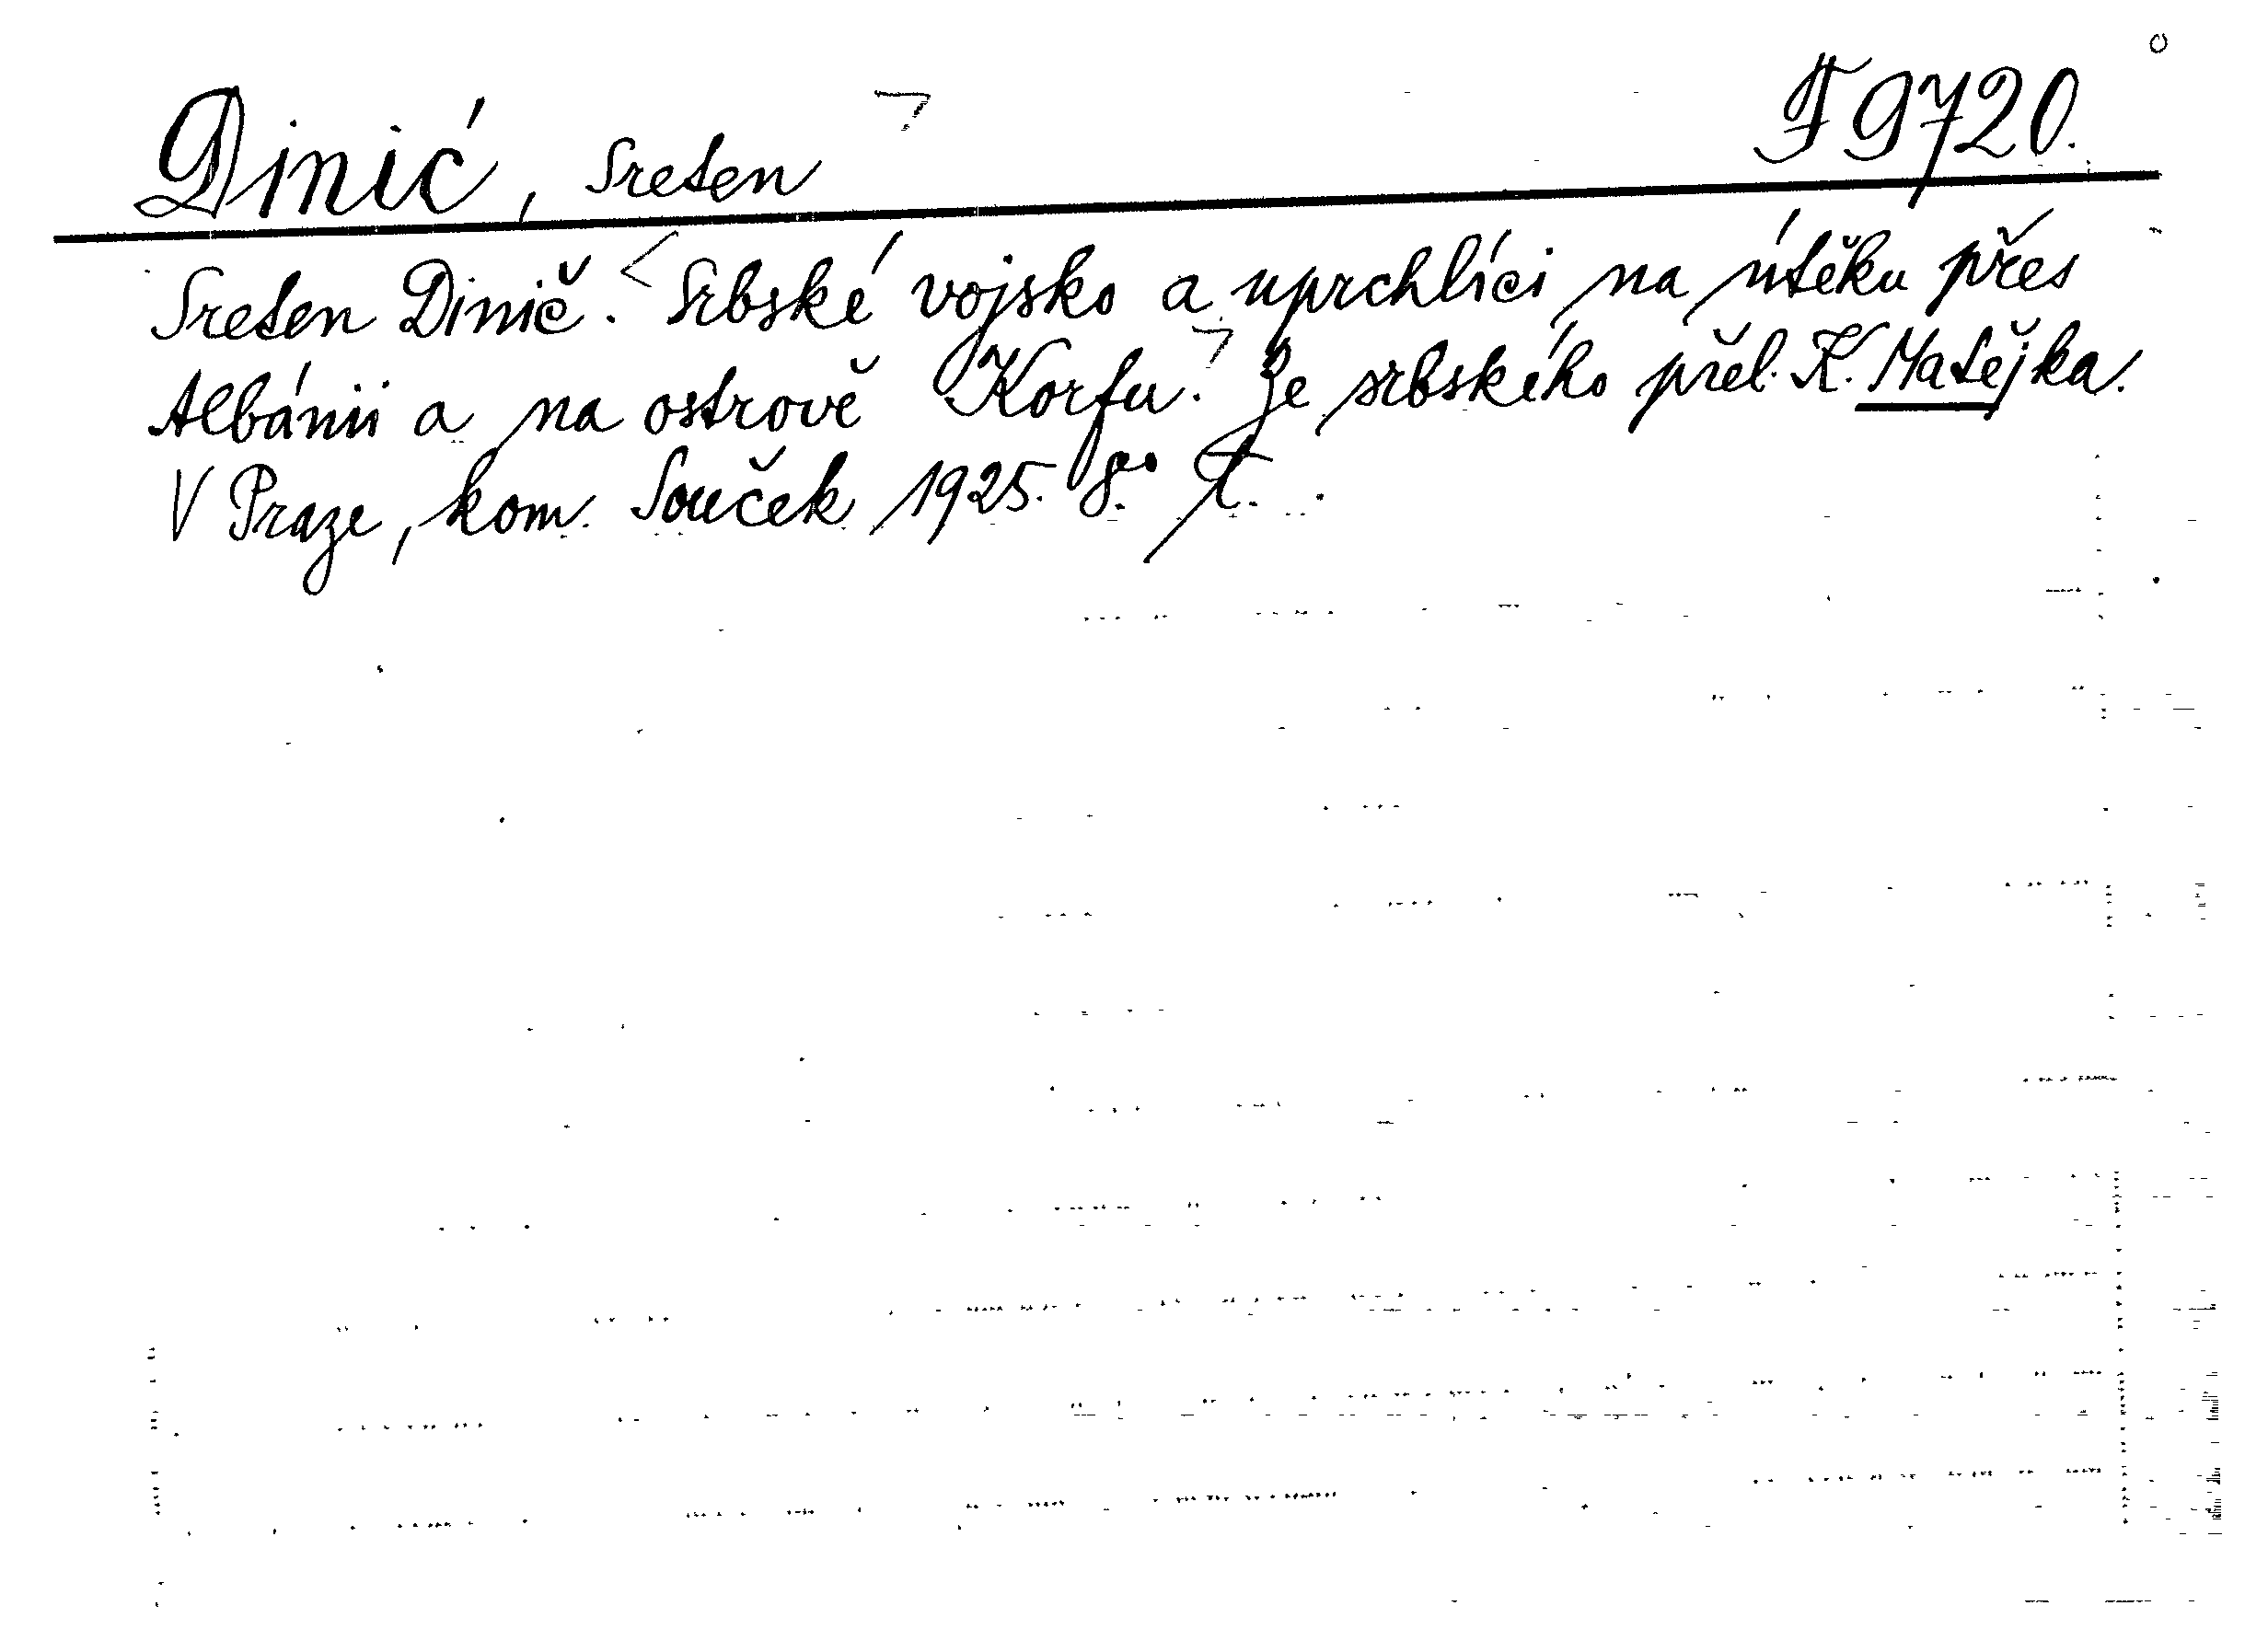 Dinić, Sreten F 9720.
Sreten Dinič. Srbské vojsko a uprchlíci na útěku přes
Albánii a na ostrově Korfu. Ze srbského přel. K. Matějka.
V Praze, kom. Souček 1925. 8°